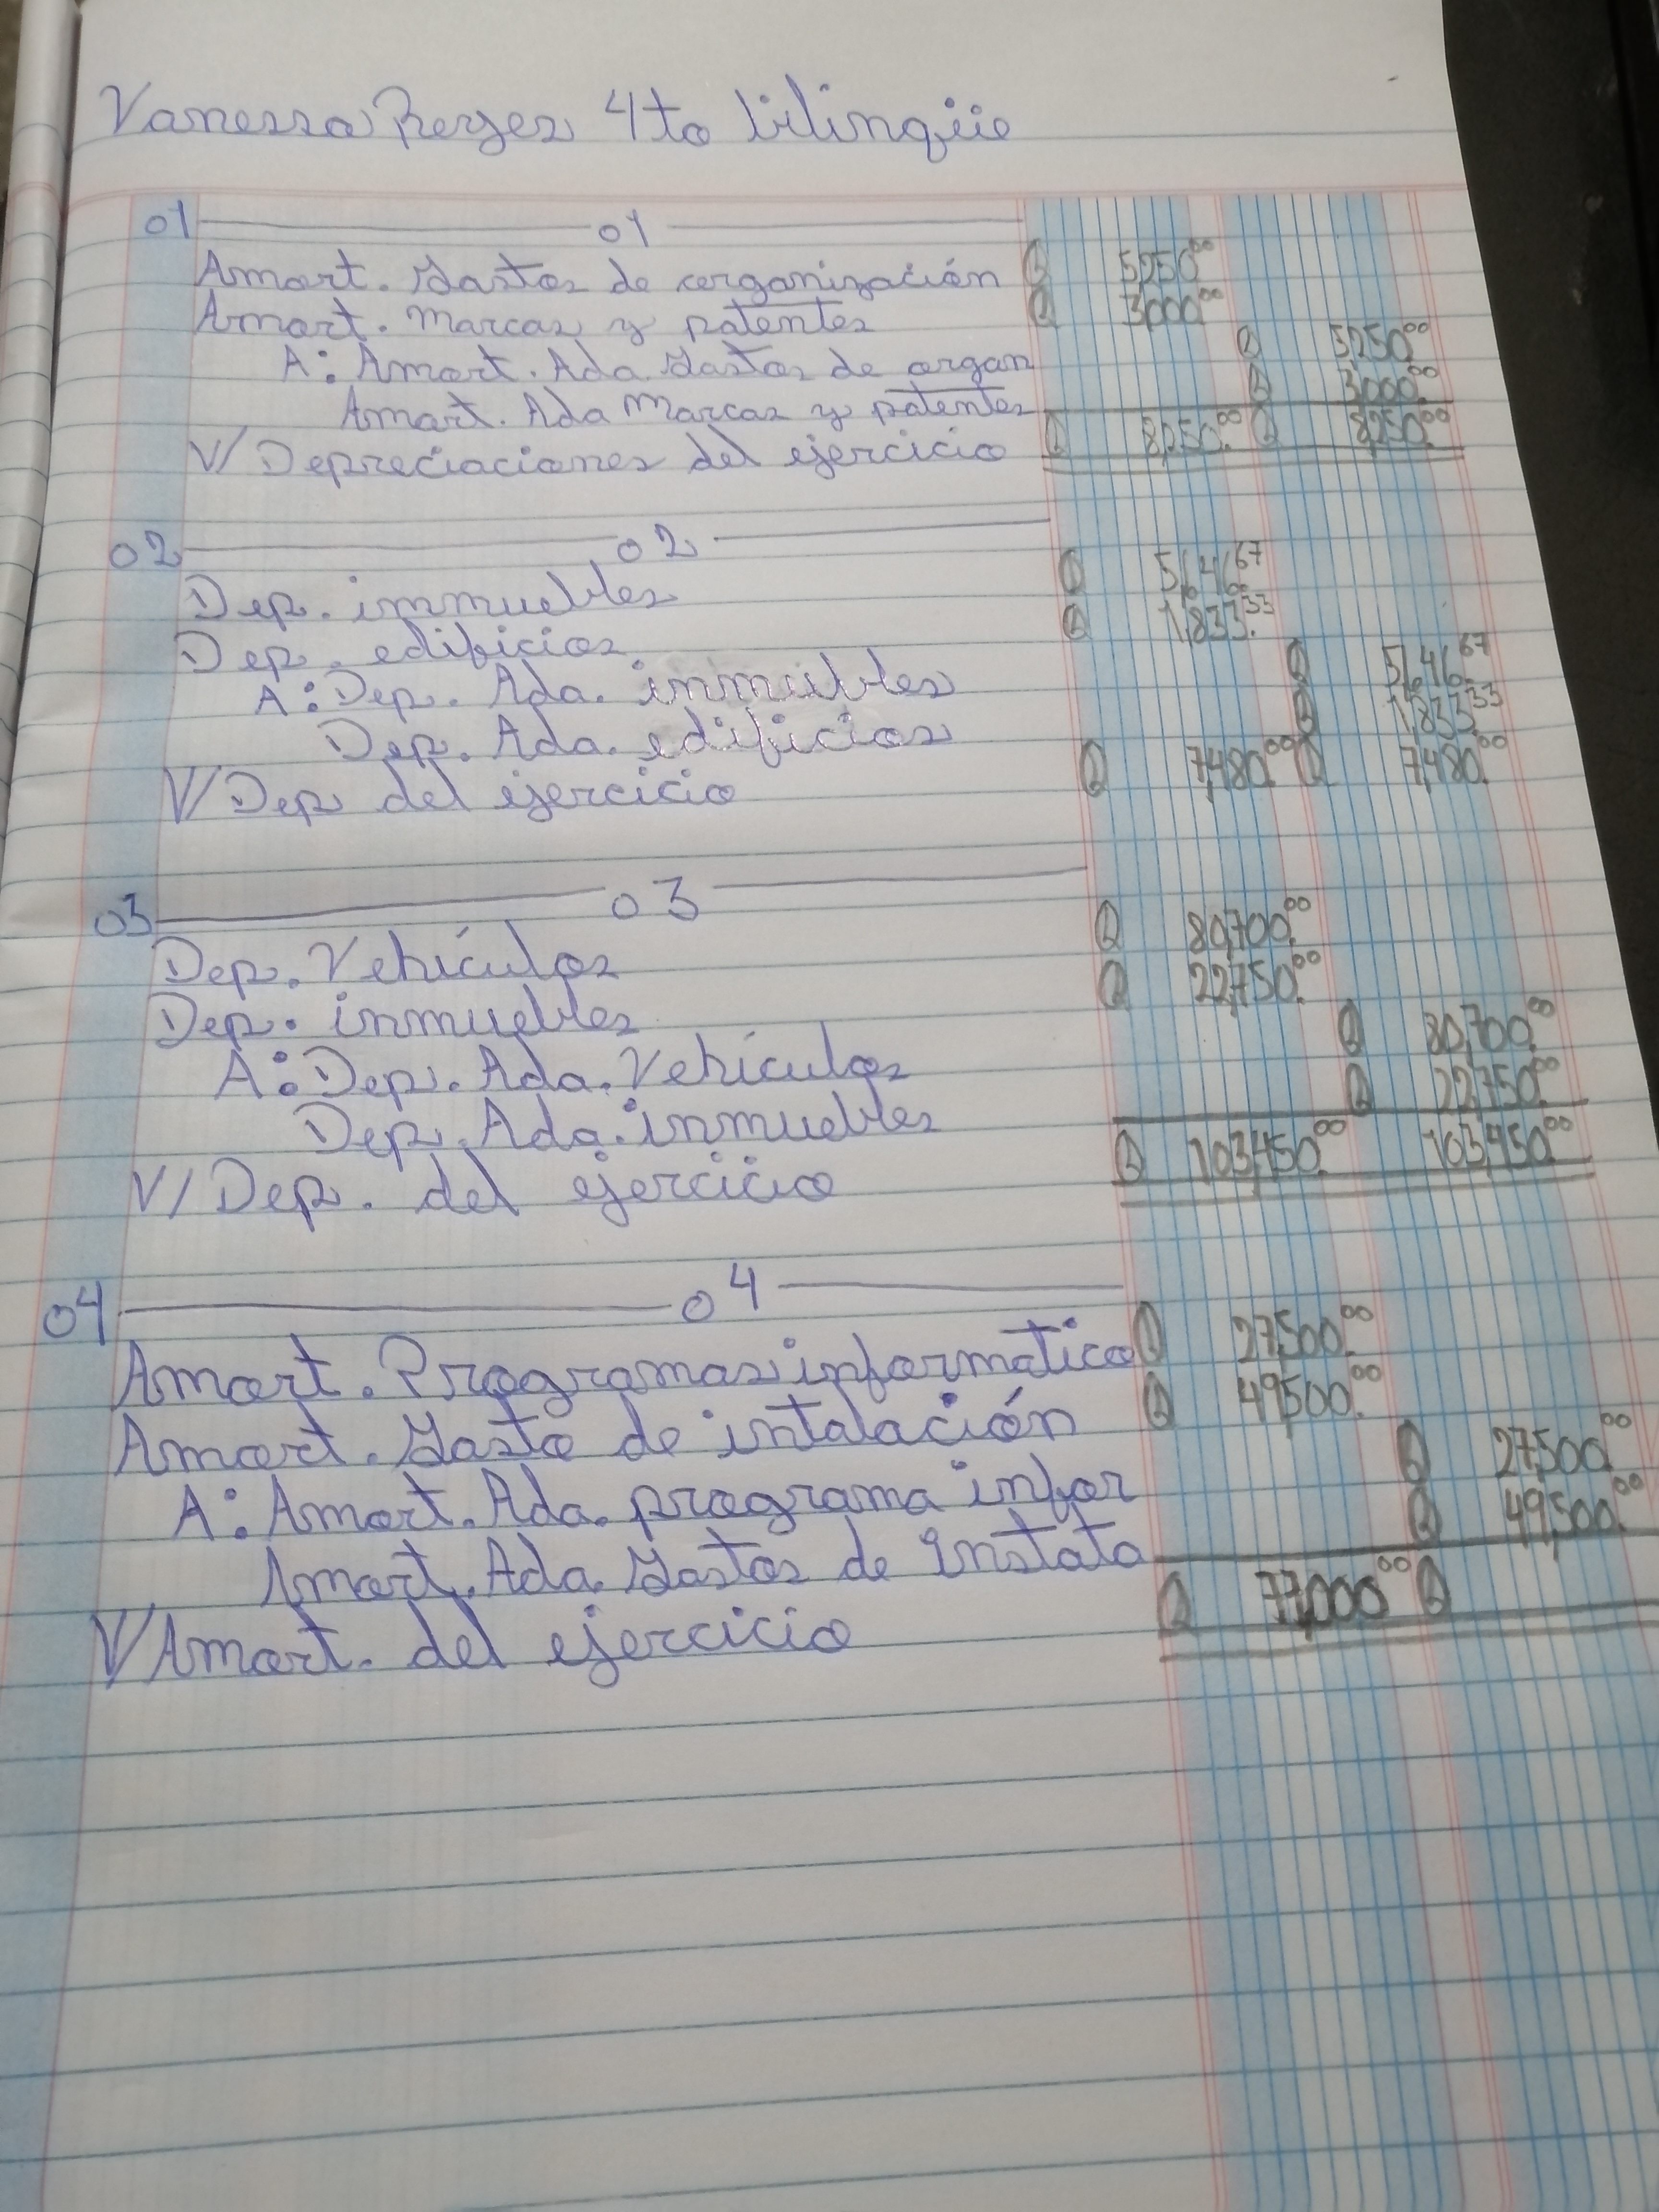 Vanessa Reyes 4to bilingüe
01 01
Amort. Gastos de organización Q 5,250.00
Amort. Marcas y patentes Q 3,000.00
A: Amort. Ada Gastos de organ Q 5,250.00
Amort. Ada Marcas y patentes Q 3,000.00
V/ Depreciaciones del ejercicio Q 8,250.00 Q 8,250.00
02 02
Dep. inmuebles Q 67
Dep. edificios Q 1,833.33
A: Dep. Ada. inmuebles Q 67
Dep. Ada. edificios Q 1,833.33
V/ Dep del ejercicio Q 7,480.00 Q 7,480.00
03 03
Dep. Vehículos Q 80,700.00
Dep. inmuebles Q 22,750.00
A: Dep. Ada. Vehículos Q 80,700.00
Dep. Ada. inmuebles Q 22,750.00
V/ Dep. del ejercicio Q 103,450.00 103,450.00
04 04
Amort. Programas informatico Q 27,500.00
Amort. Gasto de intalación Q 49,500.00
A: Amort. Ada. programa infor Q 27,500.00
Amort. Ada. Gastos de instala Q 49,500.00
V/ Amort. del ejercicio Q 77,000.00 Q